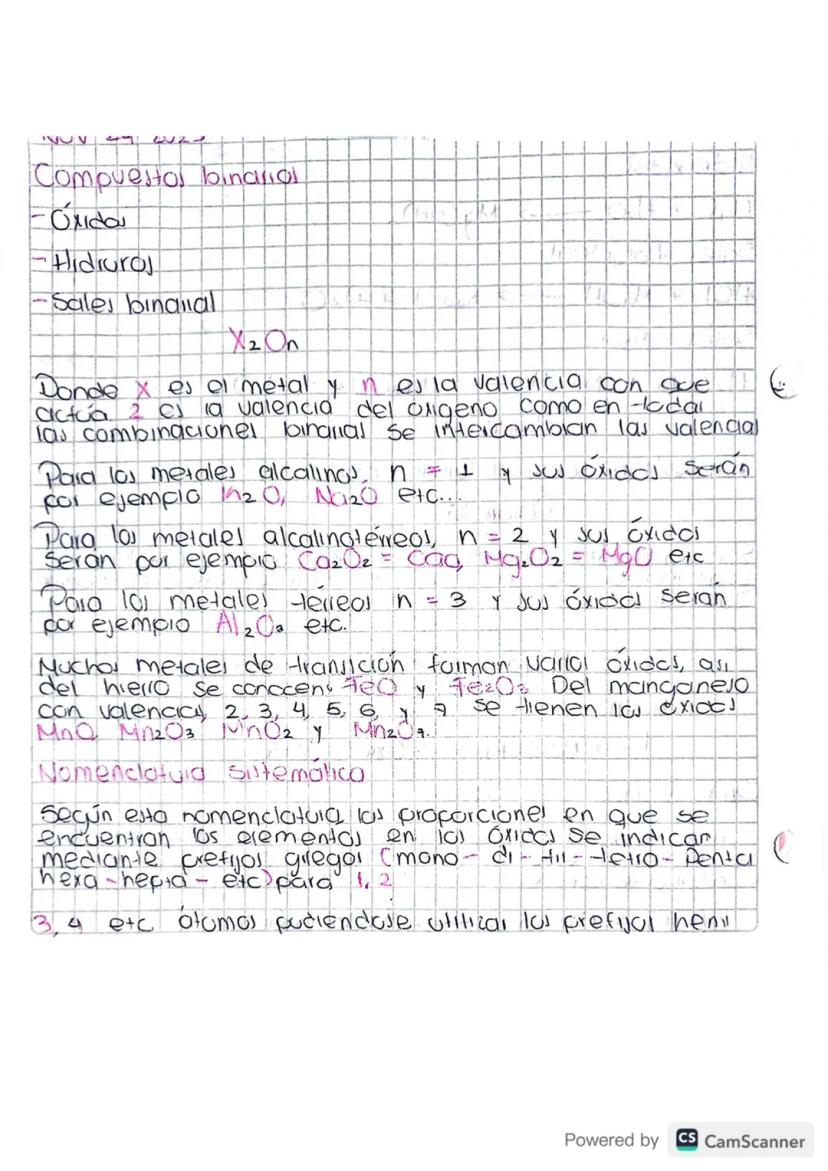 NOV 29 2023
Compuestos binarios
- Óxidos
- Hidruros
- Sales binarial
X₂On
Donde X es el metal y n es la valencia con que
actúa 2 es la valencia del oxigeno como en todas
las combinaciones binarias se intercambian las valencias
Para los metales alcalinos, n = 1 y sus óxidos serán
por ejemplo In₂O, Na₂O etc...
Para los metales alcalinotérreos, n = 2 y sus óxidos
serán por ejemplo Ca₂O₂ = CaO, Mg₂O₂ = MgO etc
Para los metales térreos n = 3 y sus óxidos serán
por ejemplo Al₂O₃ etc.
Muchos metales de transición forman varios óxidos, asi
del hierro se conocen: FeO y Fe₂O₃ Del manganeso
con valencias, 2, 3, 4, 5, 6, y 7 se tienen los óxidos
MnO Mn₂O₃ MnO₂ y Mn₂O₇.
Nomenclatura sistemática
Según esta nomenclatura las proporciones en que se
encuentran los elementos en los óxidos se indican
mediante prefijos griegos (mono- di- tri- tetra- Penta
hexa-hepta- etc) para 1, 2
3, 4 etc átomos pudiendose utilizar los prefijos hemi
Powered by CS CamScanner